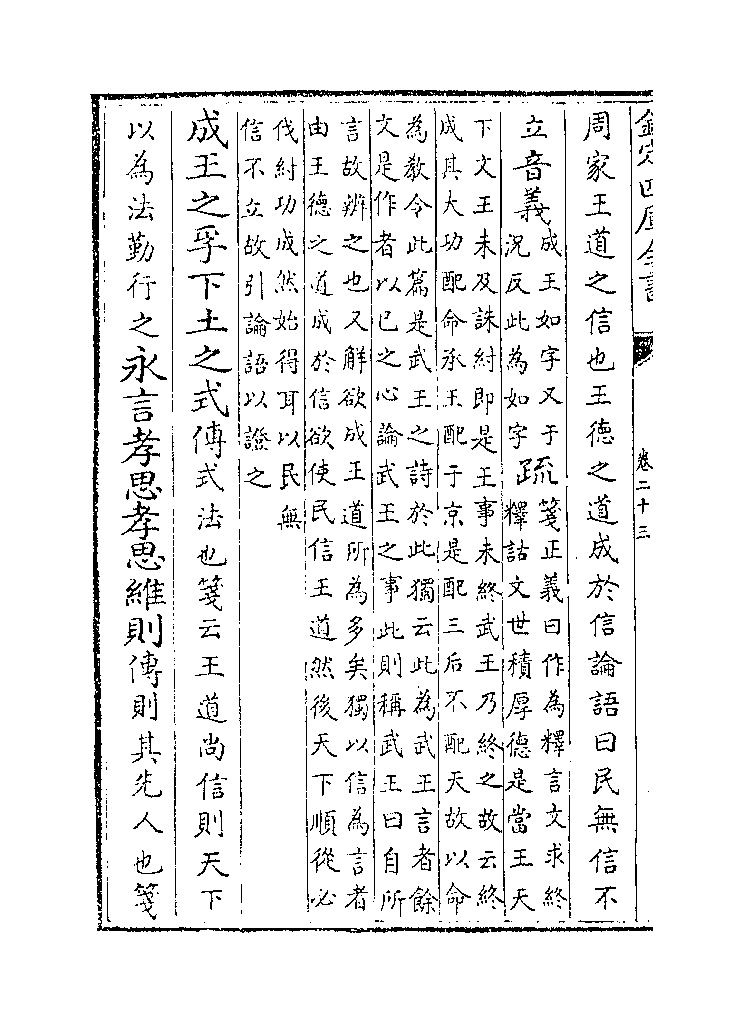 欽定四庫全書
卷二十三
周家王道之信也王德之道成於信論語曰民無信不
立音義
成王如字又于
況反此為如字
疏
箋正義曰作為釋言文求終
釋詁文世積厚德是當王天
下文王未及誅紂即是王事未終武王乃終之故云終
成其大功配命承王配于京是配三后不配天故以命
為教令此篇是武王之詩於此獨云此為武王言者餘
文是作者以已之心論武王之事此則稱武王曰自所
言故辨之也又解欲成王道所為多矣獨以信為言者
由王德之道成於信欲使民信王道然後天下順從必
伐紂功成然始得耳以民無
信不立故引論語以證之
成王之孚下土之式傳式法也箋云王道尚信則天下
以為法勤行之永言孝思孝思維則傳則其先人也箋